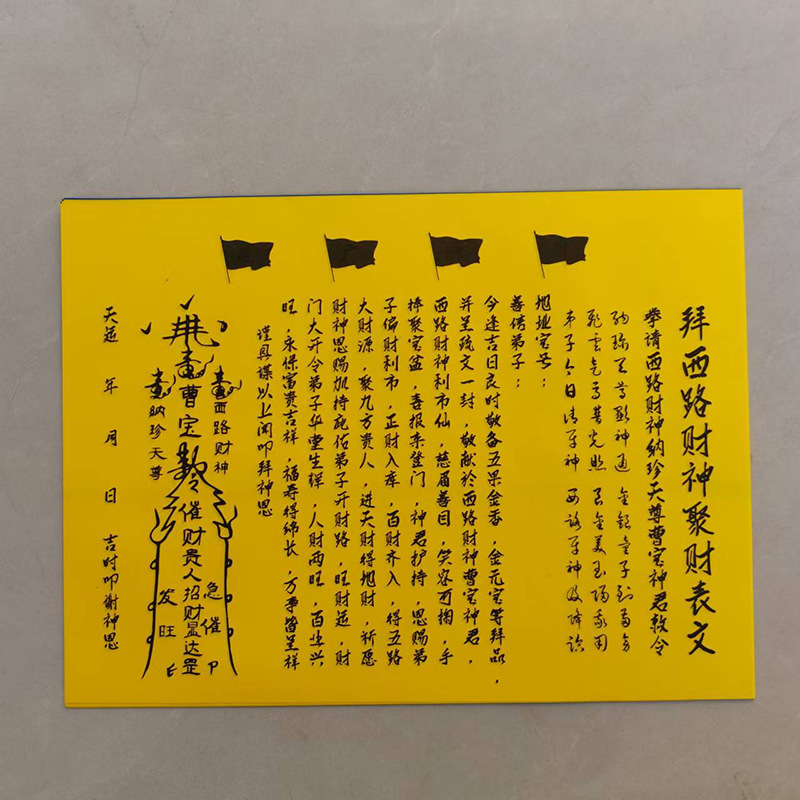 拜西路财神聚财表文
拳请西路财神纳珍天尊曹宝神君敕令
纳珍天尊显神通 金银童子到
弟子今日请财神
地址宅号：
善信弟子：
今逢吉日良时敬备五果金香，金元宝等拜品，
并呈疏文一封，敬献於西路财神曹宝神君，
西路财神利市仙，慈眉善目，笑容可掬，手
捧聚宝盆，喜报来登门，神君护持，恩赐弟
子偏财利市，正财入库，百财齐入，得五路
大财源，聚九方贵人，进天财得地财，祈愿
财神恩赐加持庇佑弟子开财路，旺财运，财
门大开令弟子华堂生辉，人财两旺，百业兴
旺，永保富贵吉祥，福寿得绵长，万事皆呈祥
谨具牒以上闻叩拜神恩
西路财神
曹宝
纳珍天尊
催财贵人招财显达罡
急催
发旺
天运 年 月 日 吉时叩谢神恩